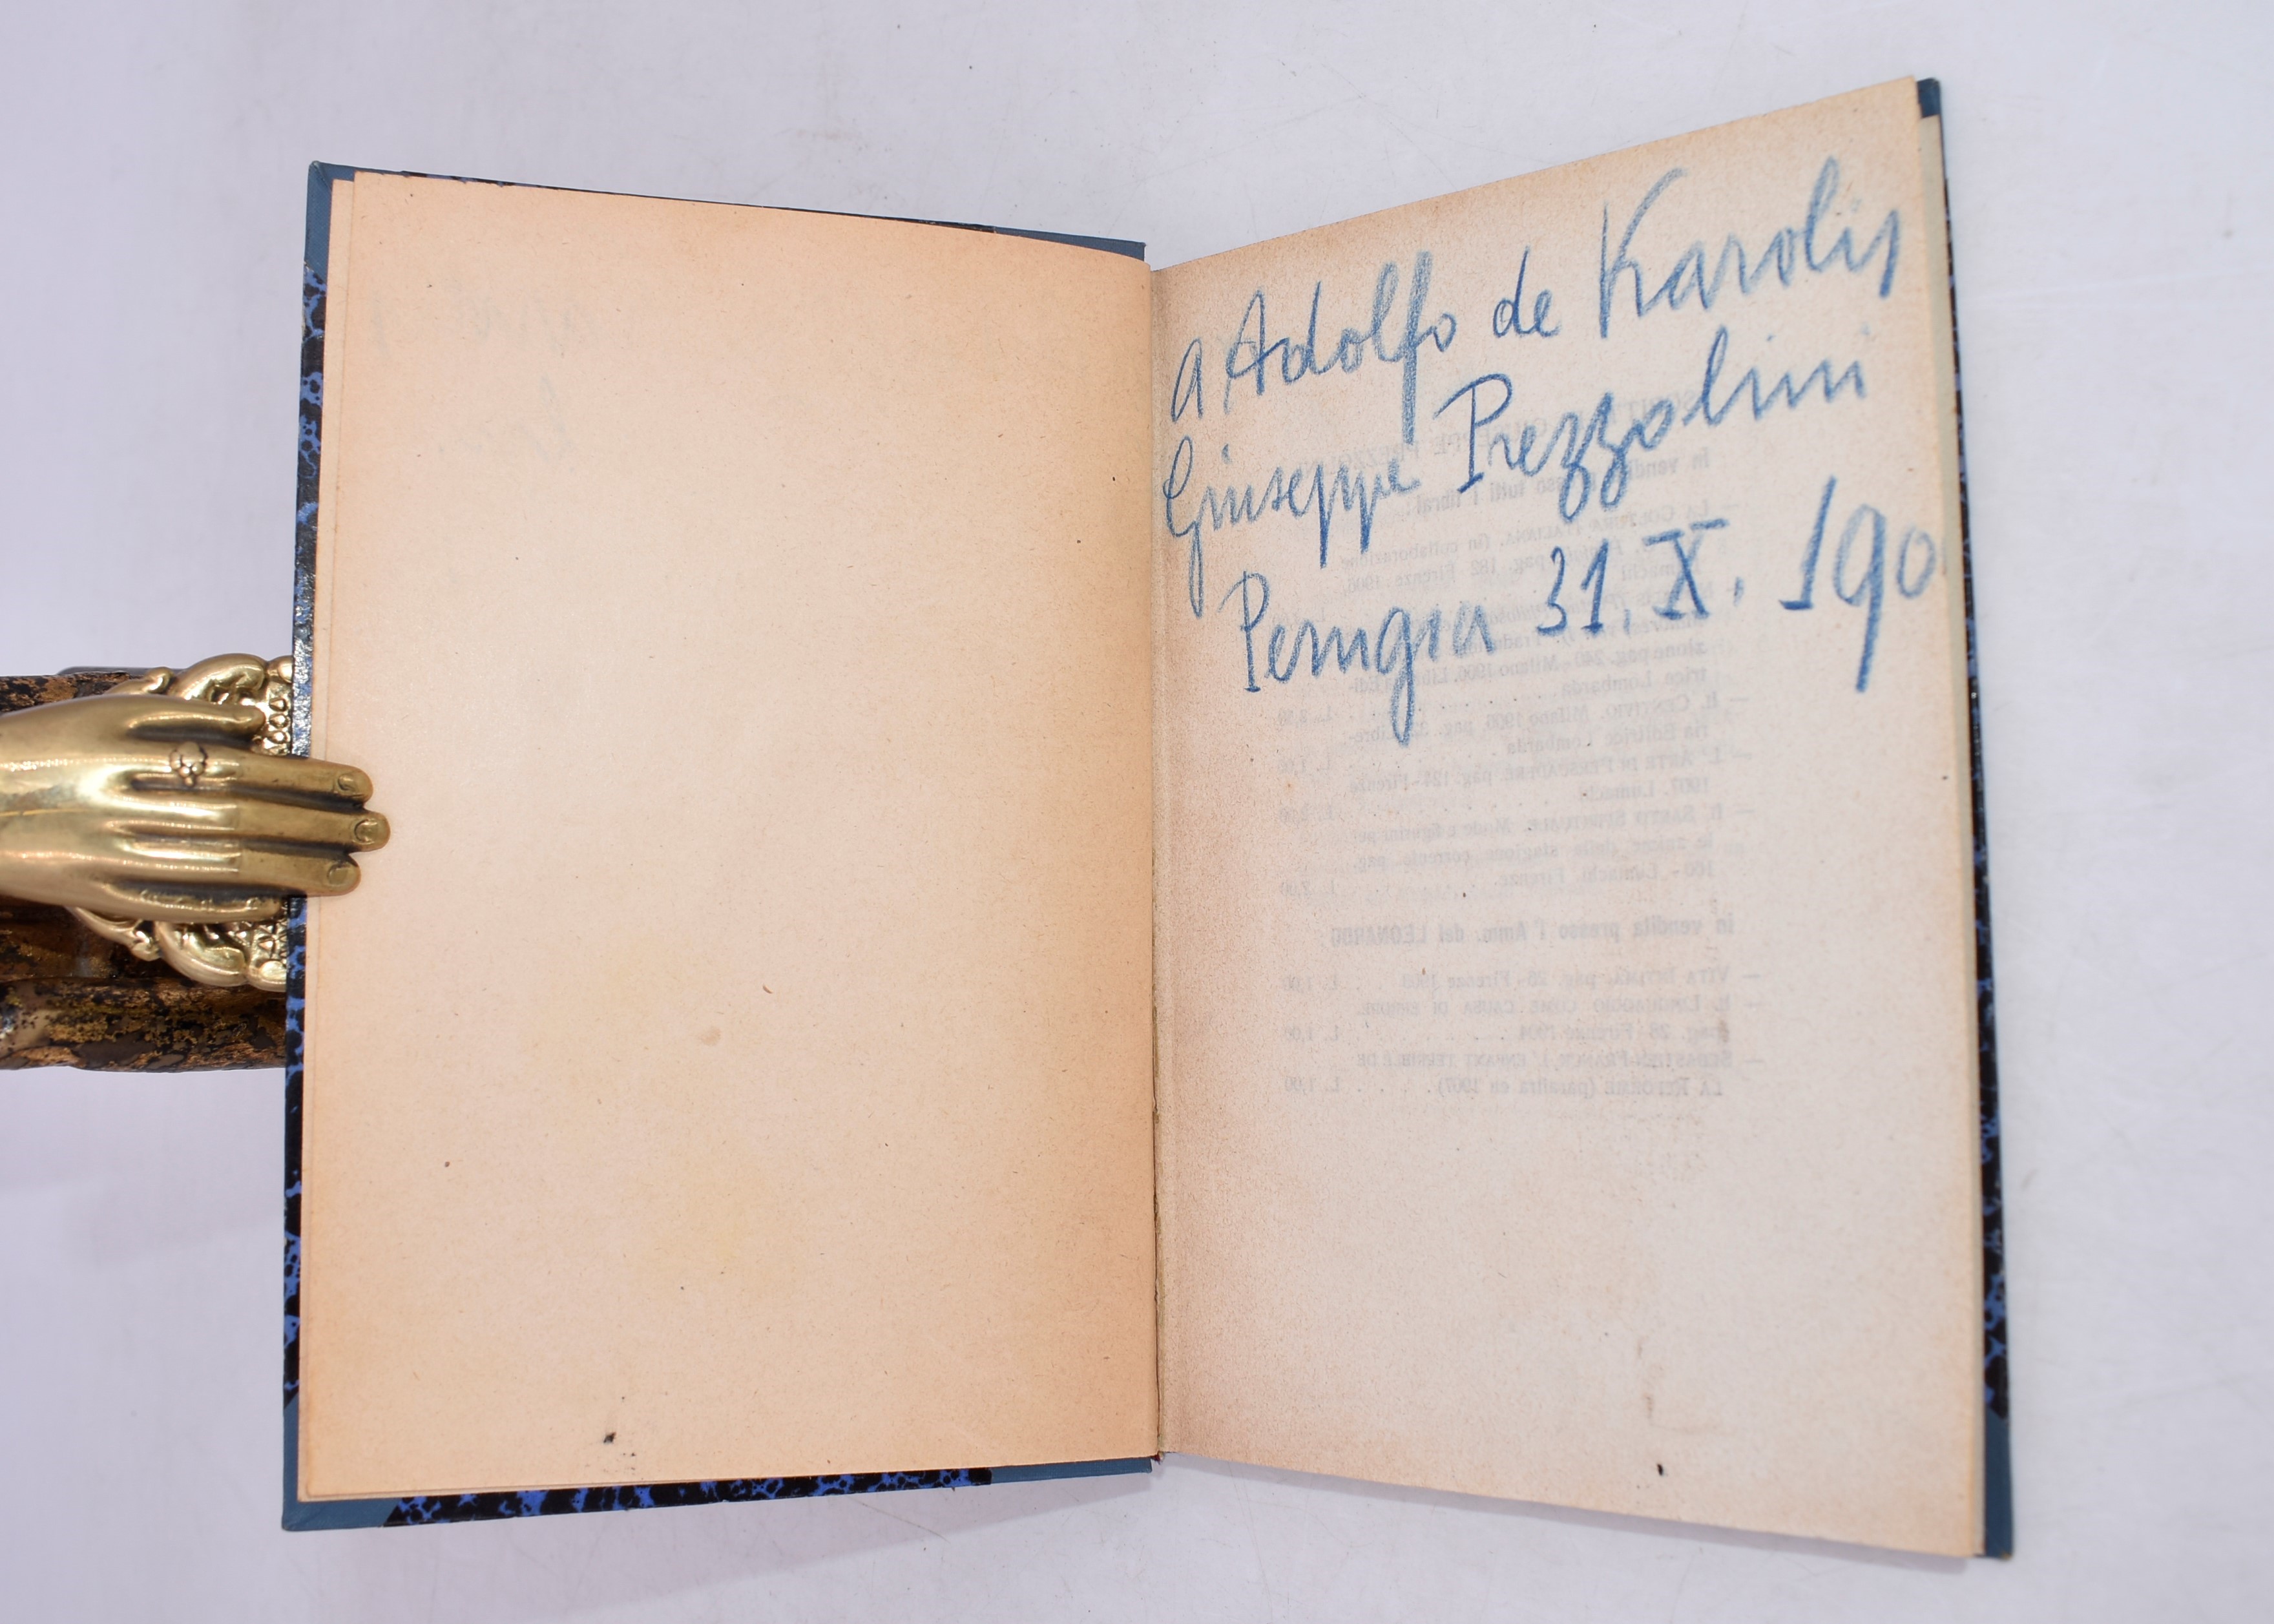 a Adolfo de Karolis
Giuseppe Prezzolini
Perugia 31. X. 190
In vendita presso tutti i librai
LA COLTURA ITALIANA. (in collaborazione
pag. 182 Firenze 1906.
zione pag. 240 - Milano 1906. Libreria Edi-
trice Lombarda
— IL CONVIVIO. Milano 1906. pag. 32. Libre-
ria Editrice Lombarda L. 1,00
— L'ARTE DI PERSUADERE. pag. 124 - Firenze
1907. Lumachi L. 2,00
— IL SARTO SPIRITUALE. Mode e figurini per
le anime della stagione corrente pag.
100 - Lumachi. Firenze. L. 2,00
In vendita presso l'Amm. del LEONARDO
— VITA INTIMA. pag. 26 - Firenze 1903 L. 1,00
— IL LINGUAGGIO COME CAUSA DI ERRORE.
pag. 26 Firenze 1904 L. 1,00
— SEBASTIEN FRANCK L'ENFANT TERRIBLE DE
LA RÉFORME (paraîtra en 1907) L. 1,00